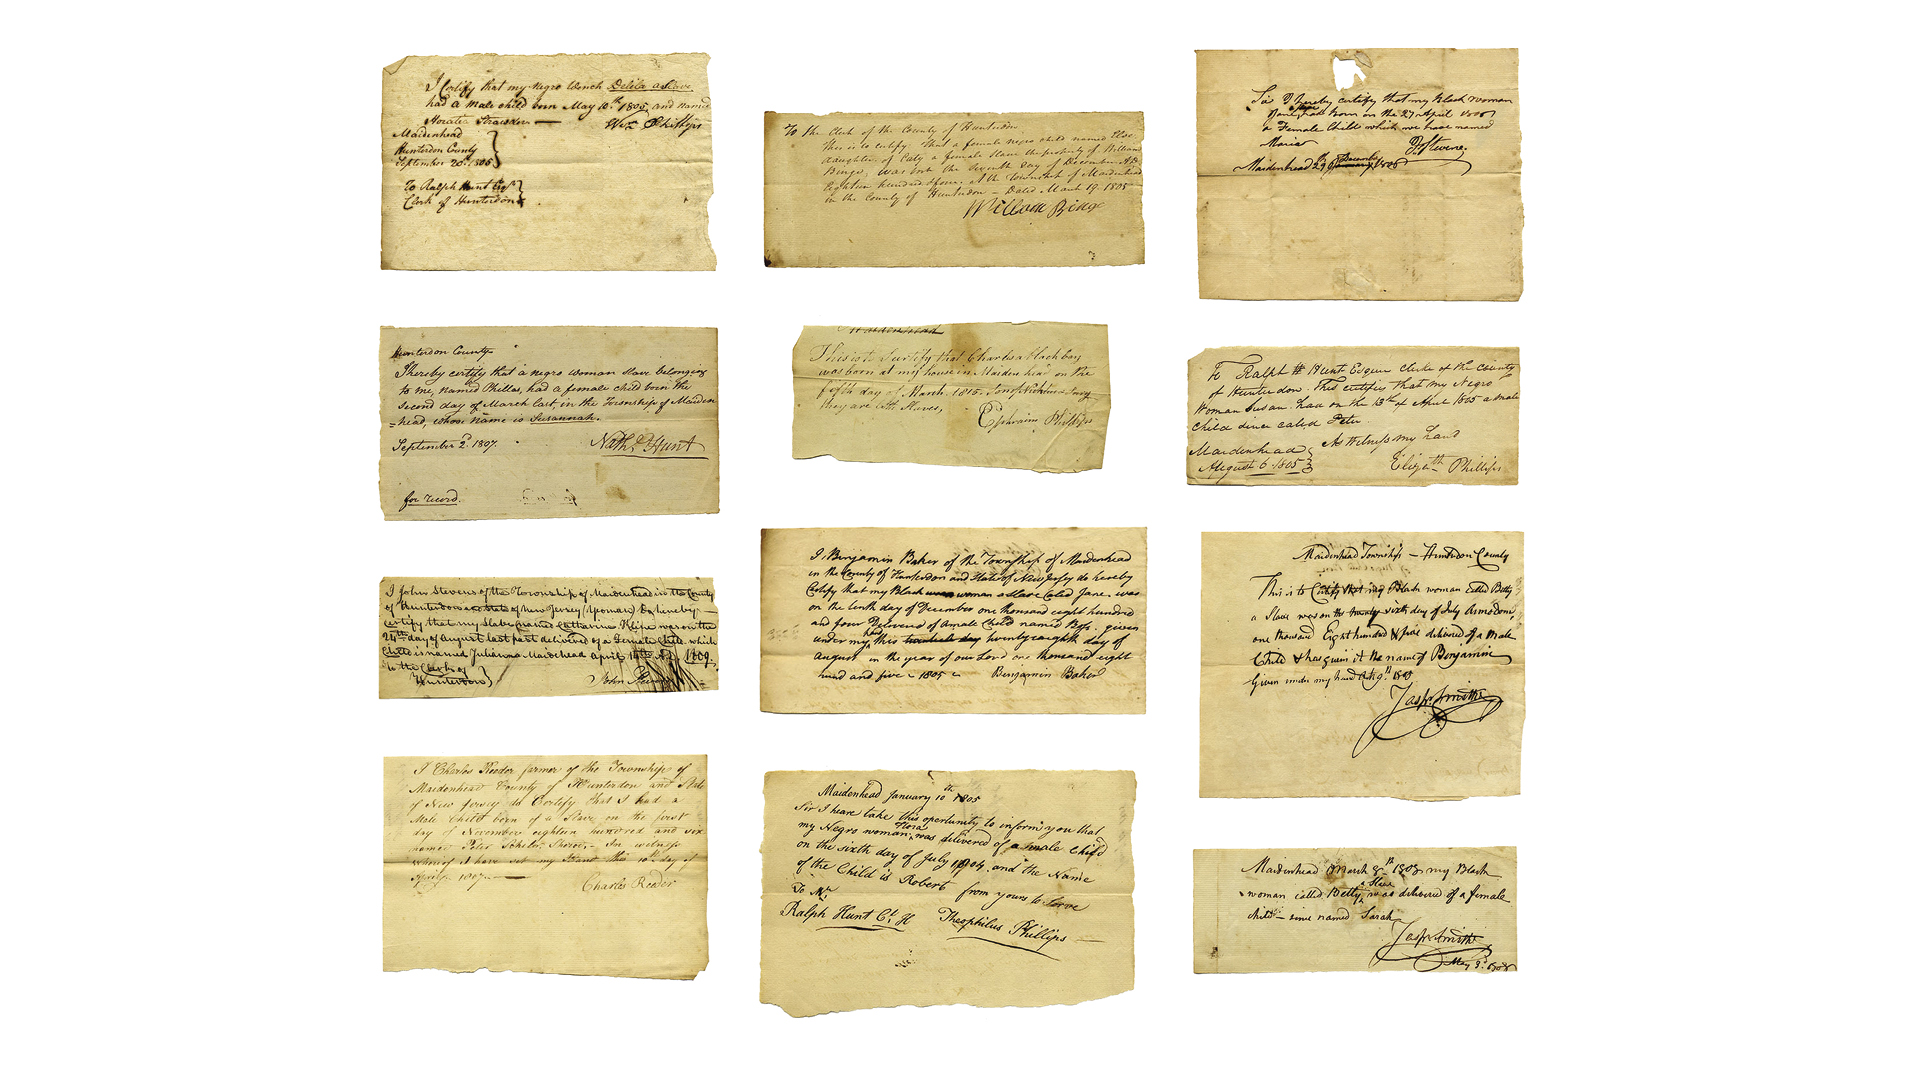 I Certify that my Negro Wench Delila a Slave
had a Male child born May 10th 1805 and named
Horatio
Wm Phillips
Maidenhead
Hunterdon County
September 20th 1805
To Ralph Hunt Esqr
Clerk of Hunterdon
Hunterdon County
I hereby certify that a negro woman slave belonging
to me, named Phillas, had a female child born the
second day of March last, in the Township of Maiden
=head, whose name is Susannah.
September 2d 1807.
Nathl Hunt
for record.
I John Stevens of the Township of Maidenhead in the County
of Hunterdon and State of New Jersey (Yeoman) Do hereby
certify that my Slave (named Catharine was on the
24th day of august last past delivered of a Female Child which
Child is named Julianna Maidenhead april 14th 1809.
to the Clerk of
Hunterdon
John Stevens
I Charles Reeder farmer of the Township of
Maidenhead County of Hunterdon and State
of New Jersey do Certify that I had a
Male Child born of a Slave on the first
day of November eighteen hundred and six
named Peter In witness
whereof I have set my Hand this 10th day of
April 1807
Charles Reeder
To the Clerk of the County of Hunterdon
this is to certify that a female negro child named
daughter of Caty a female Slave the property of William
Binge, was born the Seventh day of December AD
Eighteen hundred & four, at the township of Maidenhead
in the County of Hunterdon – Dated March 19. 1805
William Binge
This is to Certify that Charles a black boy
was born at my house in Maidenhead on the
fifth day of March 1815.
they are both Slaves,
Ephraim Phillips
I Benjamin Baker of the Township of Maidenhead
in the County of Hunterdon and State of New Jersey do hereby
Certify that my Black woman a slave Caled Jane, was
on the tenth day of December one thousand eight hundred
and four Delivered of a male Child named Bofs. given
under my hand this twenty eaighth day of
August in the year of our Lord one thousand eight
hund and five 1805
Benjamin Baker
Maidenhead January 10th 1805
Sir I heare take this opertunity to inform you that
my Negro woman, Flora was delivered of a male Child
on the sixth day of July 1804. and the Name
of the Child is Robert from yours to serve
To Mr
Ralph Hunt Ct. H
Theophilus Phillips
Sir I hereby certify that my black woman
Jane, had born on the 27 April
a Female Child which we have named
Maria
Stevens.
Maidenhead
To Ralph H Hunt Esquir Clerke of the County
of Hunterdon. This certifis that my Negro
Woman Susan. had on the 13th of April 1805 a male
child called Peter
As Witness my hand
Maidenhead
August 6 1805
Elizath Phillips
Maidenhead Township – Hunterdon County
This is to Certify that my Black woman called Betty
a Slave was on the twenty sixth day of July
one thousand Eight hundred & five delivered of a Male
Child & has given it the name of Benjamin
Given under my hand
Jaspr. Smith
Maidenhead March 8th 1808 my Black
woman called Betty, a Slave was delivered of a female
child – since named Sarah
Jaspr. Smith
May 3d 1808